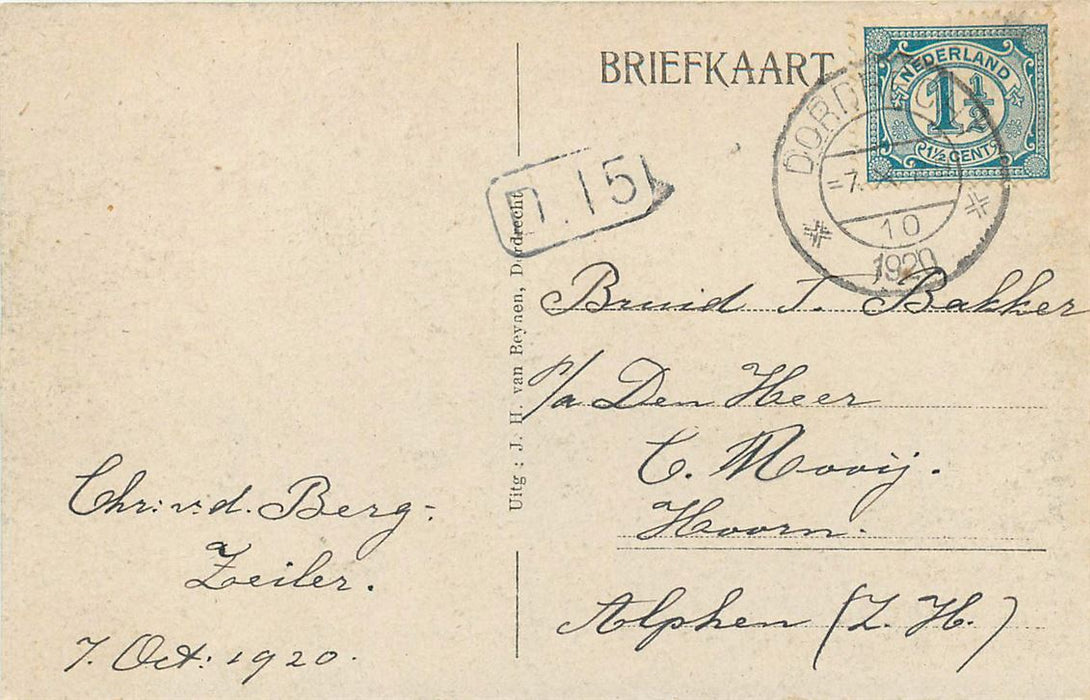 BRIEFKAART
NEDERLAND
1½
1½ CENT
DORDRECHT
=7.
10
1920
D.15
Uitg: J. H. van Beynen, Dordrecht
Bruid T. Bakker
p/a Den Heer
C. Mooij.
Hoorn.
Alphen (Z. H.)
Chr: v.d. Berg.
Zeiler.
7. Oct: 1920.